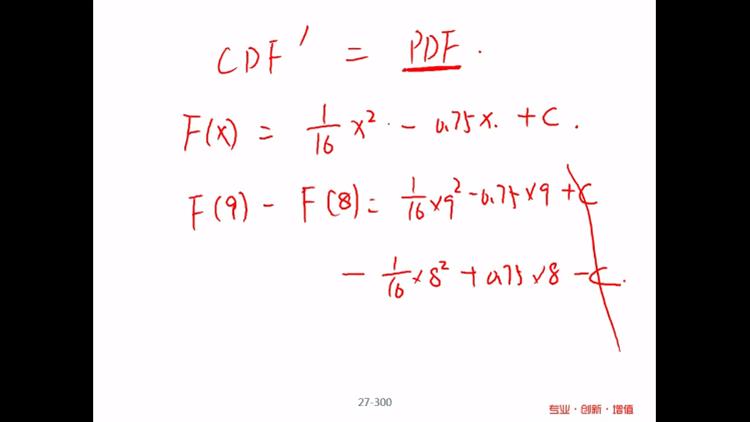 CDF' = PDF.
F(x) = 1/16 x² - 0.75x. + C.
F(9) - F(8) = 1/16 × 9² - 0.75 × 9 + C
- 1/16 × 8² + 0.75 × 8 - C.
27-300
专业·创新·增值